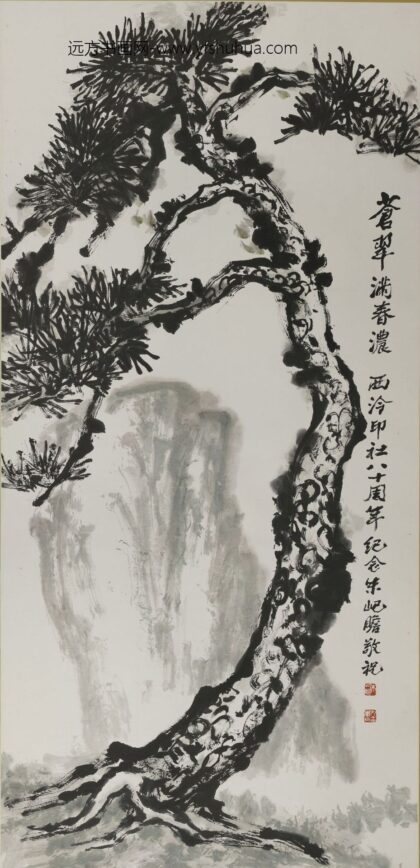 远方书画网 www.yfshuhua.com
蒼翠满春濃 西泠印社八十周年纪念朱屺瞻敬祝